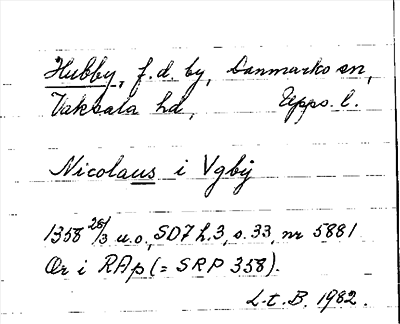 Hubby, f.d. by, Danmarks sn,
Vaksala hd, Upps. l.
Nicolaus i Vgbij
1358 28/3 u.o, SD7 h.3, s.33, nr 5881
Or i RAp (= SRP 358).
L.t.B. 1982.